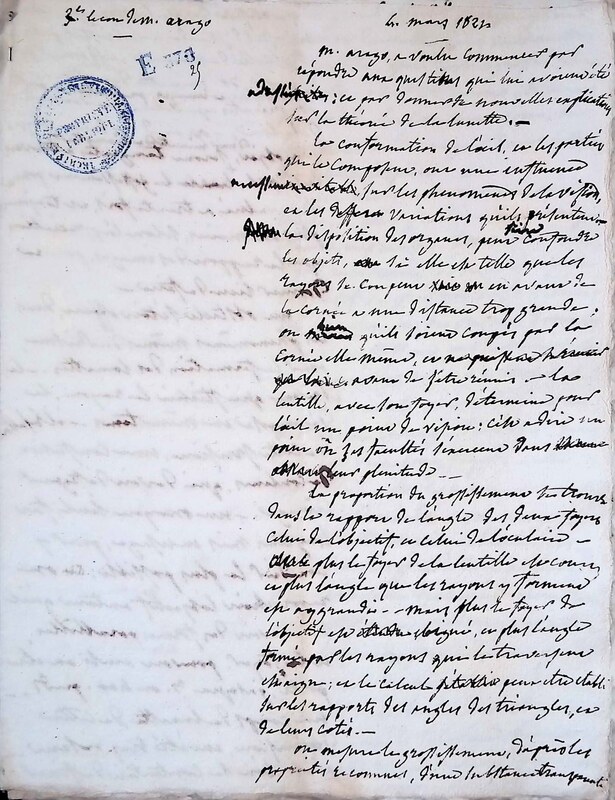 3.e leçon de m. arago
4 mars 1824
E 378
25
m. arago, a voulu commencer par
répondre aux questions qui lui avoient été
ce par donner de nouvelles explications
sur la théorie de la lunette. —
la conformation de l'œil, et les parties
qui le composent, ont une influence
sur les phénomènes de la vision,
et les variations qu'ils présentent. —
la disposition des organes, peut faire confondre
les objets, si elle est telle que les
rayons se coupent en avant de
la cornée a une distance trop grande ;
ou bien qu'ils soient coupés par la
cornée elle même, et
avant de s'être réunis. — la
lentille, avec son foyer, détermine pour
l'œil un point de vision : c'est à dire un
point où ses facultés s'exercent dans
leur plénitude. —
la proportion du grossissement se trouve
dans le rapport de l'angle des deux foyers
celui de l'objectif, et celui de l'oculaire —
plus le foyer de la lentille est court,
et plus l'angle que les rayons y forment
est aggrandi. — mais plus le foyer de
l'objectif est éloigné, et plus l'angle
formé par les rayons qui le traversent
et le calcul peut être établi
sur les rapports des angles des triangles, et
de leurs cotés. —
on mesure le grossissement, d'après les
propriétés reconnues, d'une substance transparente